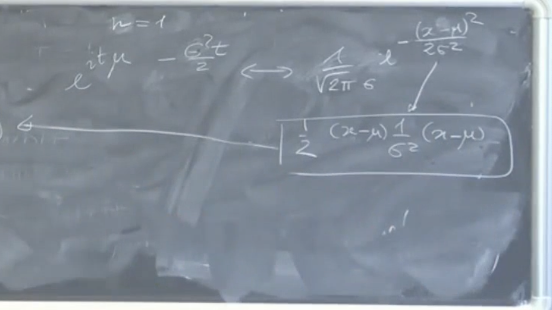 n = 1
e^{itμ - σ²t/2} ⟷ 1/(√2π σ) e^{-(x-μ)²/2σ²}
1/2 (x-μ) 1/σ² (x-μ)